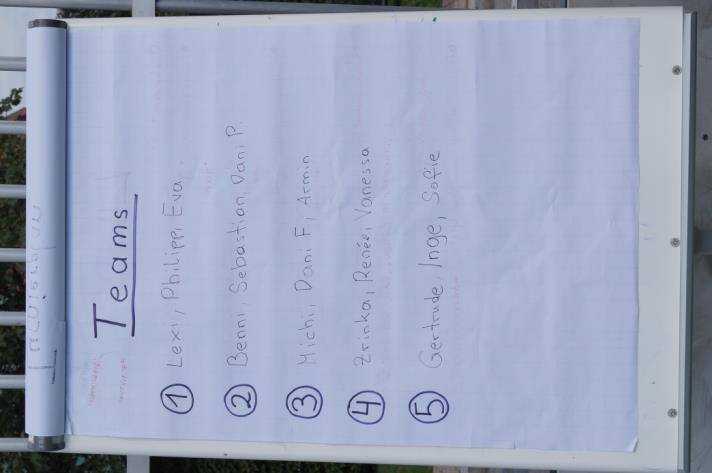 Teams
① Lexi, Philipp, Eva
② Benni, Sebastian, Dani P.
③ Michi, Dani F, Armin
④ Zrinka, Renée, Vanessa
⑤ Gertrude, Inge, Sofie